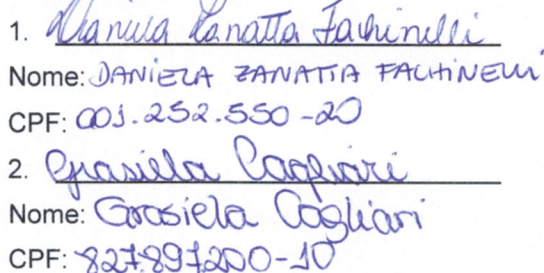 1. Daniela Zanatta Fachinelli
Nome: DANIELA ZANATTA FACHINELLI
CPF: 001.252.550-20
2. Grasiela Cagliari
Nome: Grasiela Cagliari
CPF: 827.897.200-10